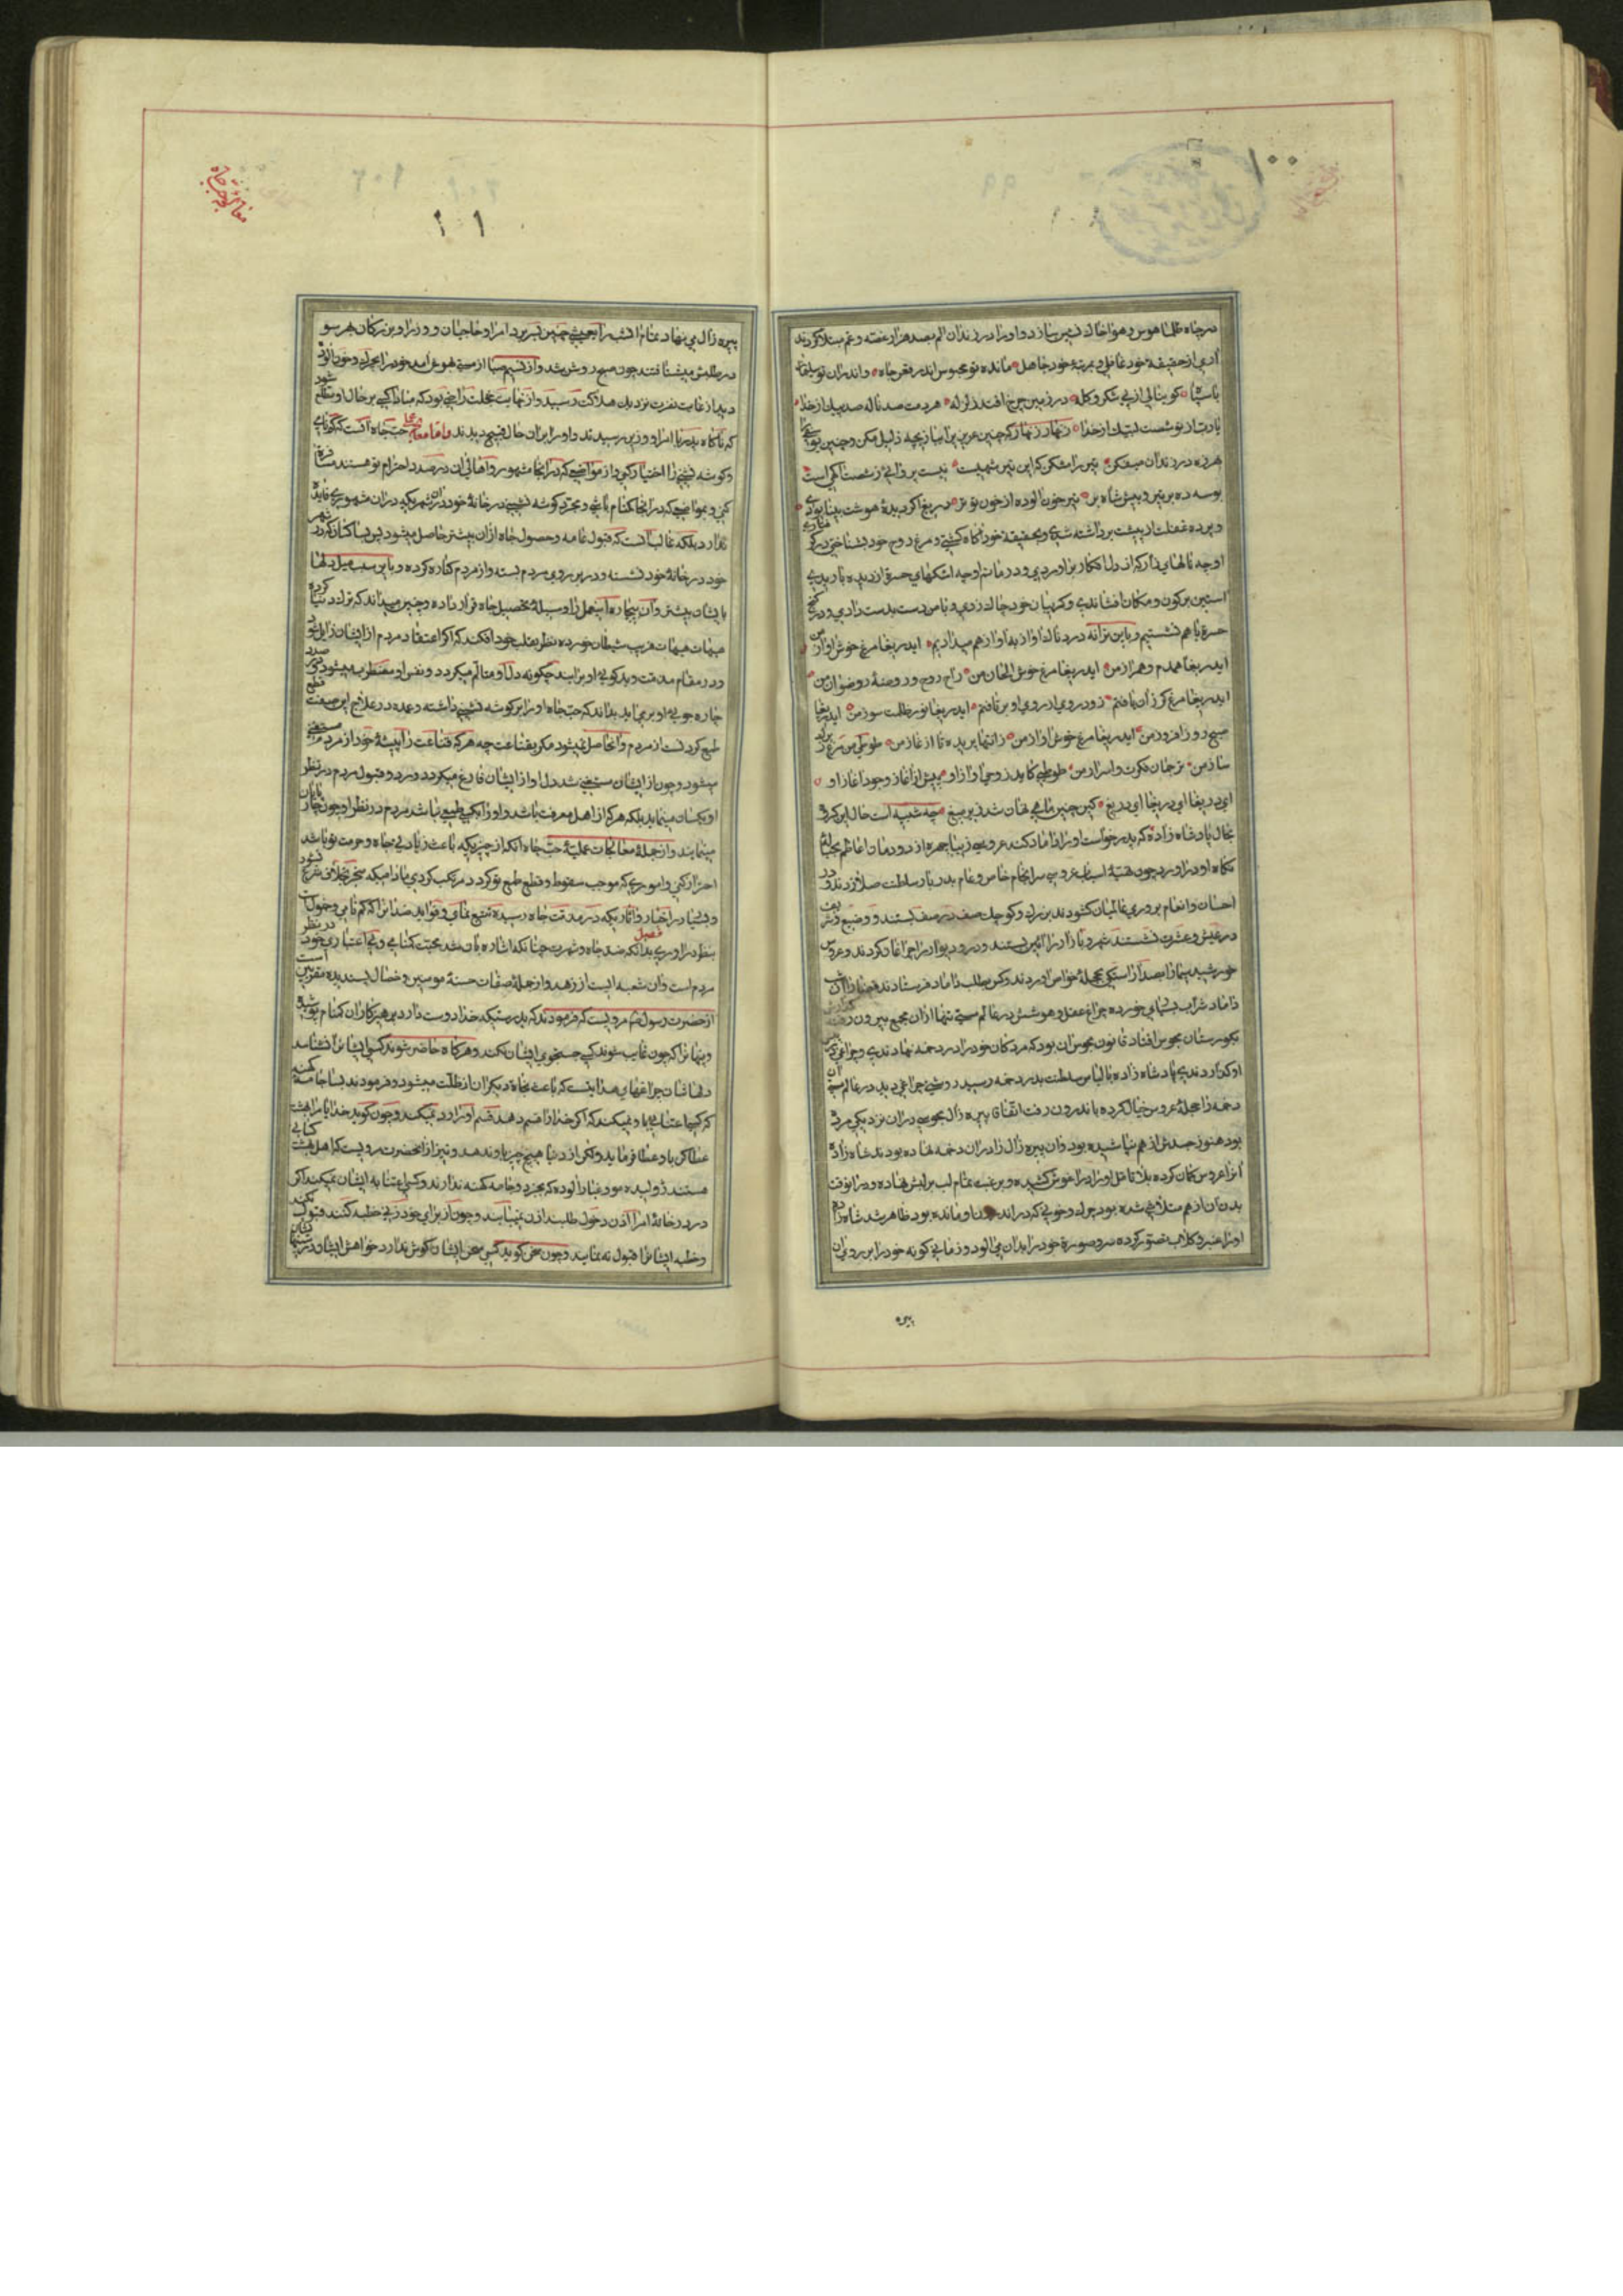 ۱۰۰
در چاه ظلمانی هوس و هوا خاک نشین سازد و او را در زندان الم بصد هزار غصه و غم مبتلا گرداند
آدمی از حقیقت خود غافل و بمرتبه خود جاهل مانده تو محبوس اندر قعر چاه و اندران تو
پادشاها کو بنالی از پی شکر و کلاه در زمین چرخ افتد زلزله هر دمت صد ناله صد پیک از خدا
یاربت از تو شصت لبیک از خدا زنهار زنهار که چنین عزیزی را بازیچه ذلیل مکن و چنین
هرزه در زندان میفکن تیر را مشکن که این تیر شهیست نیست پرتابی ز شصت آگهی است
بوسه ده بر تیر و پیش شاه بر تیر خون آلوده از خون تو تر دریغا اگر دیده هوشت بینا بودی
و پرده غفلت از پیشت برداشته شدی و بحقیقت خود آگاه گشتی و مرغ روح خود بشناختی
و چه نالهای زار که از دل افکار برآوردی و در ماتم او چه اشکهای حسرت از دیده باریدی
آستین بر کون و مکان افشاندی و گریبان خود چاک زدی و با من دست بدست دادی و در کنج
حسرت با هم نشستیم و باین ترانه دردناک آواز بدآواز هم میدادیم ای دریغا مرغ خوش آواز من
ای دریغا همدم و همراز من ای دریغا مرغ خوش الحان من راح روح و روضه رضوان من
ای دریغا مرغ کارزان یافتم زود روی از روی او برتافتم ای دریغا نور ظلمت سوز من ای دریغا
صبح روز افروز من ای دریغا مرغ خوش پرواز من زانتها پریده تا آغاز من طوطی من مرغ
ساز من ترجمان فکرت و اسرار من طوطی کاید ز وحی آواز او پیش از آغاز وجود آغاز او
ای دریغا ای دریغا ای دریغ کین چنین ماهی نهان شد زیر میغ چه شبیه است حال این
بحال پادشاه زاده که پدر خواست او را داماد کند عروسی زیبا چهره از دودمان اعاظم بحباله
نکاح او درآورد چون تهیه اسباب عروسی سرانجام خاص و عام بدربار سلطنت صلا زدند و در
احسان و انعام بر روی عالمیان گشودند بزرگ و کوچک صف در صف نشستند و وضیع و شریف
در عیش و عشرت نشستند شهر و بازار را آئین بستند و در و دیوار را چراغان کردند و عروس
خورشید سیما را بصد آراستگی بحجله خواص آوردند و کس بطلب داماد فرستادند قضا را آن شب
داماد شراب بسیاری خورده چراغ عقل و هوشش در عالم مستی تنها از آن مجمع بیرون رفت
بگورستان مجوس افتاد قانون مجوس آن بود که مردگان خود را در دخمه نهادندی و چراغی
او گذاردندی پادشاه زاده با لباس سلطنت بدر دخمه رسید روشنی چراغی دید در عالم مستی آن
دخمه را حجله عروس خیال کرده باندرون رفت اتفاقا پیره زال مجوسی در آن نزدیکی مرده
بود هنوز جسدش از هم نپاشیده بود و آن پیره زال را در آن دخمه نهاده بودند شاه زاده
آنرا عروس گمان کرده بلا تامل او را در آغوش کشیده و برغبت تمام لب بر لبش نهاده و در آنوقت
بدن آن از هم متلاشی شده بود چرک و خونی که در اندرون او مانده بود ظاهر شد شاه زاده
آنرا عنبر و گلاب تصور کرده سر و صورت خود را بدان می آلود و زمانی گونه خود را بر روی آن
پیره
معالجه حب جاه
۱۰۱
پیره زال می نهاد تمام آنشب را بعیشی چنین بسر برد امرا و حاجبان و وزرا و بزرگان هر سو
در طلبش میشتافتند چون صبح روشن شد و از نسیم صبا از مستی بهوش آمد خود را بچرک و خون آلوده
دید از غایت نفرت نزدیک بهلاکت رسید و از نهایت خجلت راضی بود که مبادا کسی بر حال او مطلع شود
که ناگاه پدر با امرا و وزیر رسیدند و او را بران حال قبیح دیدند و اما معالجه عملی حب جاه آنست که گمنامی
و گوشه نشینی را اختیار کنی و از مواضعی که در آنجا مشهور و اهالی آن در صدد احترام تو هستند مسافرت
کنی و بمواضعی که در آنجا گمنام باشی و مجرد گوشه نشینی در خانه خود در شهریکه در آن شهوری فایده
ندارد بلکه غالب آنست که قبول عامه و حصول جاه از آن بیشتر حاصل میشود پس بسا کسان که در شهر
خود در خانه خود نشسته و در بر روی مردم بسته و از مردم کناره کرده و باین سبب میل دلها
بایشان بیشتر و آن بیچاره اینعمل را وسیله تحصیل جاه قرار داده و چنین میداند که ترک دنیا کرده
هیهات هیهات فریب شیطان خورده نظر بقلب خود افکند که اگر اعتقاد مردم از ایشان زایل شود
و در مقام مذمت و بدگویی او برآیند چگونه دل او متالم میگردد و نفس او مضطرب میشود و در صدد
چاره جویی او برمی آید بداند که حب جاه او را بر گوشه نشینی داشته و عمده در علاج این صفت قطع
طمع کردنست از مردم و آن حاصل نمیشود مگر بقناعت چه هر که قناعت را پیشه خود از مردم مستغنی
میشود و چون از ایشان مستغنی شد دل او از ایشان فارغ میگردد و رد و قبول مردم در نظر
او یکسان مینماید بلکه هر که از اهل معرفت باشد و او را بکسی طمعی نباشد مردم در نظر او چون چارپایان
مینمایند و از جمله معالجات عملیه حب جاه آنکه از چیزیکه باعث زیادتی جاه و حرمت تو باشد
احتراز کنی و اموری که موجب سقوط و قطع طمع تو گردد مرتکب گردی مادامیکه منجر بخلاف شرع نشود
و در اخبار و آثاریکه در مذمت جاه رسیده تتبع نمائی و فواید ضد آنرا که گم نامی و خمول است در نظر
بنظر درآوری فصل بدانکه ضد جاه و شهرت چنانکه اشاره بآن شد محبت گمنامی و بی اعتباری خود در نظر
مردم است و آن شعبه ایست از زهد و از جمله صفات حسنه مومنین و خصال پسندیده مقربین است
از حضرت رسول ص مرویست که فرمودند که بدرستیکه خدا دوست دارد پرهیزکاران گمنام پوشیده
و پنهانرا که چون غایب شوند کسی جستجوی ایشان نکند و هرگاه حاضر شوند کسی ایشانرا نشناسد
دلهاشان چراغهای هدایتست که باعث نجات دیگران از ظلمت میشود و فرمودند بسا جامه کهنه
که کسی اعتنایی باو نمیکند که اگر خدا را قسم دهد قسم او را رد نمیکند و چون گوید خدایا مرا بهشت
عطا کن باو عطا فرماید ولکن از دنیا هیچ چیز باو ندهد و نیز از آنحضرت مرویست که اهل بهشت کسانی
هستند ژولیده مو و غبار آلوده که بجز دو جامه کهنه ندارند و کسی اعتنا به ایشان نمیکند اگر
در در خانه امرا اذن دخول طلبند اذن نمییابند و چون از برای خود زنی خطبه کنند قبول نکند
و خطبه ایشانرا قبول نه نمایند و چون سخن گویند کسی بسخن ایشان گوش ندارد خواهش ایشان در سینها